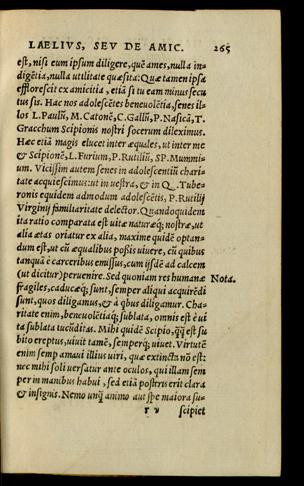 LAELIVS, SEV DE AMIC. 265
est, nisi eum ipsum diligere, quē ames, nulla in-
digētia, nulla utilitate quæsita: Quæ tamen ipsa
efflorescit ex amicitia, etiā si tu eam minus secu
tus sis. Hac nos adolescētes beneuolētia, senes il-
los L. Paulū, M. Catonē, C. Gallū, P. Nasicā, T.
Gracchum Scipionis nostri socerum dileximus.
Hæc etiā magis elucet inter æquales, ut inter me
& Scipionē, L. Furium, P. Rutiliū, SP. Mummi-
um. Vicissim autem senes in adolescentiū chari-
tate acquiescimus: ut in uestra, & in Q. Tube-
ronis equidem admodum adolescētis, P. Rutilij
Virginij familiaritate delector. Quandoquidem
ita ratio comparata est uitæ naturæq; nostræ, ut
alia ætas oriatur ex alia, maxime quidē optan-
dum est, ut cū æqualibus poßis uiuere, cū quibus
tanquā è carceribus emissus, cum ijsdē ad calcem
(ut dicitur) peruenire. Sed quoniam res humanæ Nota.
fragiles, caducæq; sunt, semper aliqui acquirēdi
sunt, quos diligamus, & à qbus diligamur. Cha-
ritate enim, beneuolētiaq; sublata, omnis est è ui
ta sublata iucūditas. Mihi quidē Scipio, qq̄ est su
bito ereptus, uiuit tamē, semperq; uiuet. Virtutē
enim semp amaui illius uiri, quæ extincta nō est:
nec mihi soli uersatur ante oculos, qui illam sem
per in manibus habui, sed etiā postris erit clara
& insignis. Nemo unq̄ animo aut spe maiora su-
r v scipiet